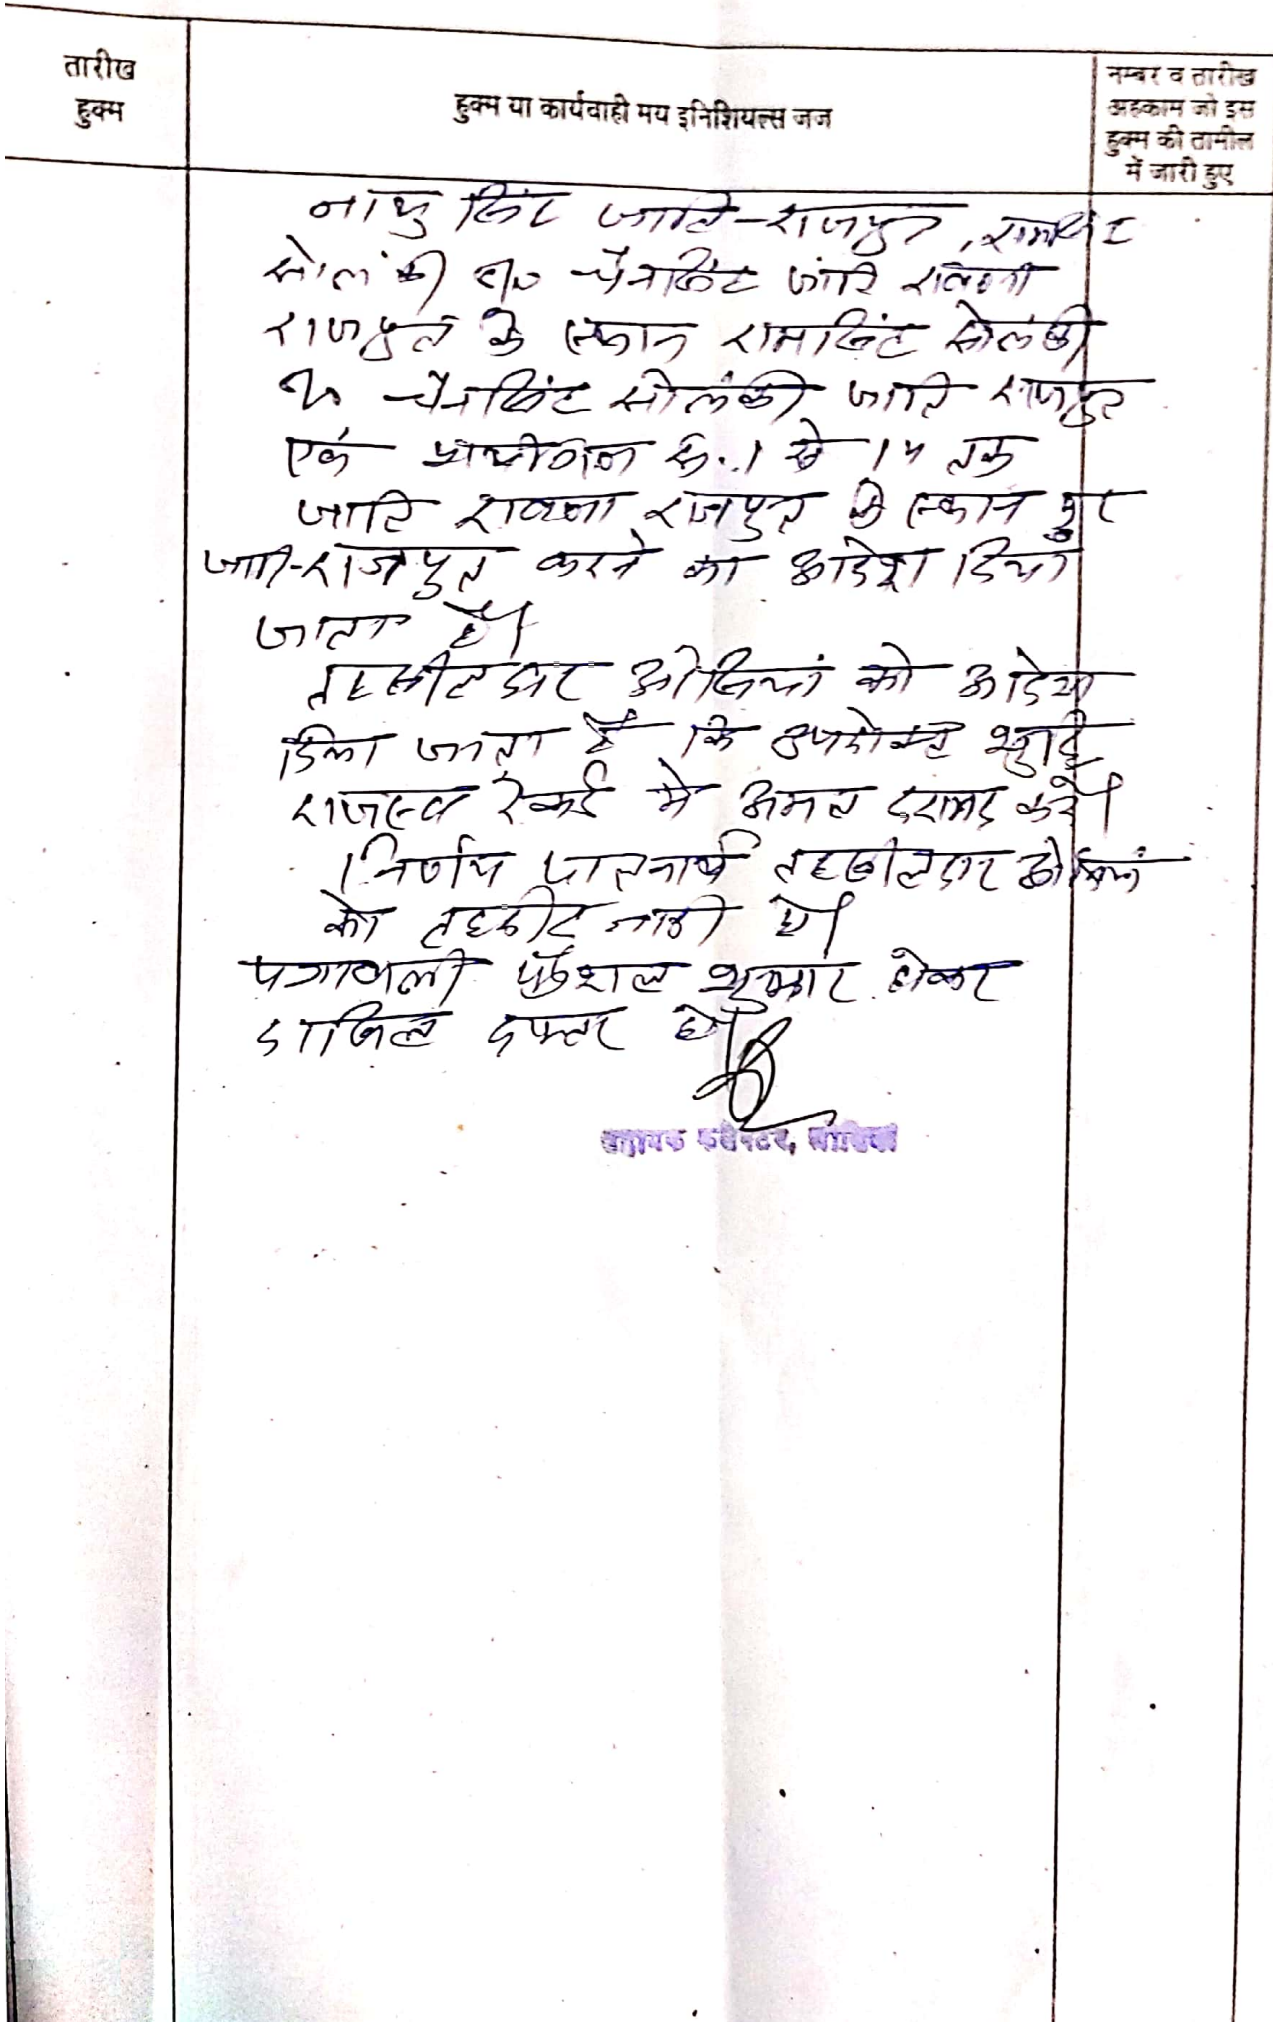 तारीख
हुक्म
हुक्म या कार्यवाही मय इनिशियल्स जज
नम्बर व तारीख
अहकाम जो इस
हुक्म की तामील
में जारी हुए
नाथु सिंह जाति-राजपुत, रामसिंह
सोलंकी S/o चैनसिंह जाति रावणा
राजपुत के स्थान रामसिंह सोलंकी
S/o चैनसिंह सोलंकी जाति राजपुत
एवं प्रार्थीगण सं. 1 से 14 तक
जाति रावणा राजपुत के स्थान पर
जाति-राजपुत करने का आदेश दिया
जाता है।
तहसीलदार ओसियां को आदेश
दिया जाता है कि उपरोक्त शुद्धि
राजस्व रेकर्ड मे अमल दरामद करे।
निर्णय पालनार्थ तहसीलदार ओसियां
को तहरीर जारी हो।
पत्रावली फैशल शुमार होकर
दाखिल दफ्तर हो।
सहायक कलेक्टर, ओसियां